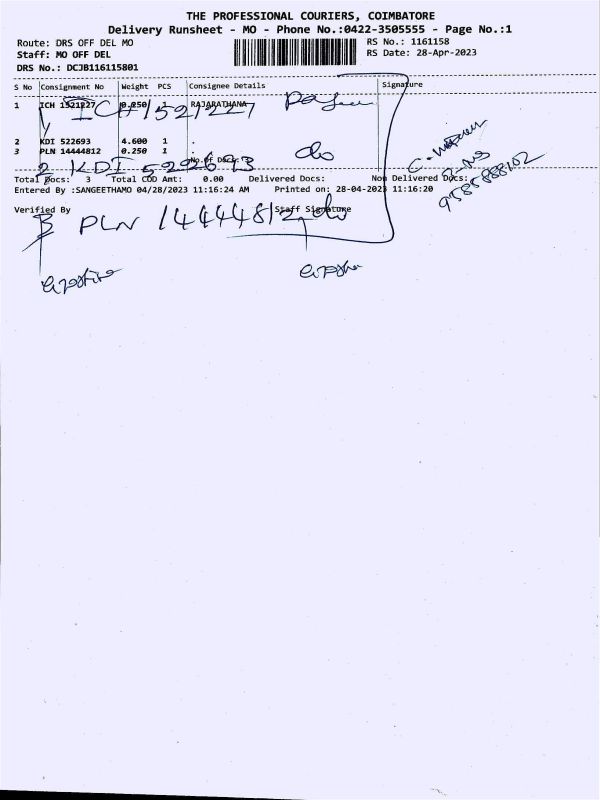 THE PROFESSIONAL COURIERS, COIMBATORE
Delivery Runsheet - MO - Phone No.:0422-3505555 - Page No.:1
Route: DRS OFF DEL MO
RS No.: 1161158
Staff: MO OFF DEL
RS Date: 28-Apr-2023
DRS No.: DCJB116115801
S No Consignment No Weight PCS Consignee Details Signature
1 ICH 1521227 0.250 1 RAJARATHANA
ICH 1521227
2 KDI 522693 4.600 1 .
3 PLN 14444812 0.250 1 .
do
No.Of Docs: 3
2 KDI 522693
Total Docs: 3 Total COD Amt: 0.00 Delivered Docs: Non Delivered Docs:
Entered By :SANGEETHAMO 04/28/2023 11:16:24 AM Printed on: 28-04-2023 11:16:20
Verified By Staff Signature
3 PLN 14444812 do